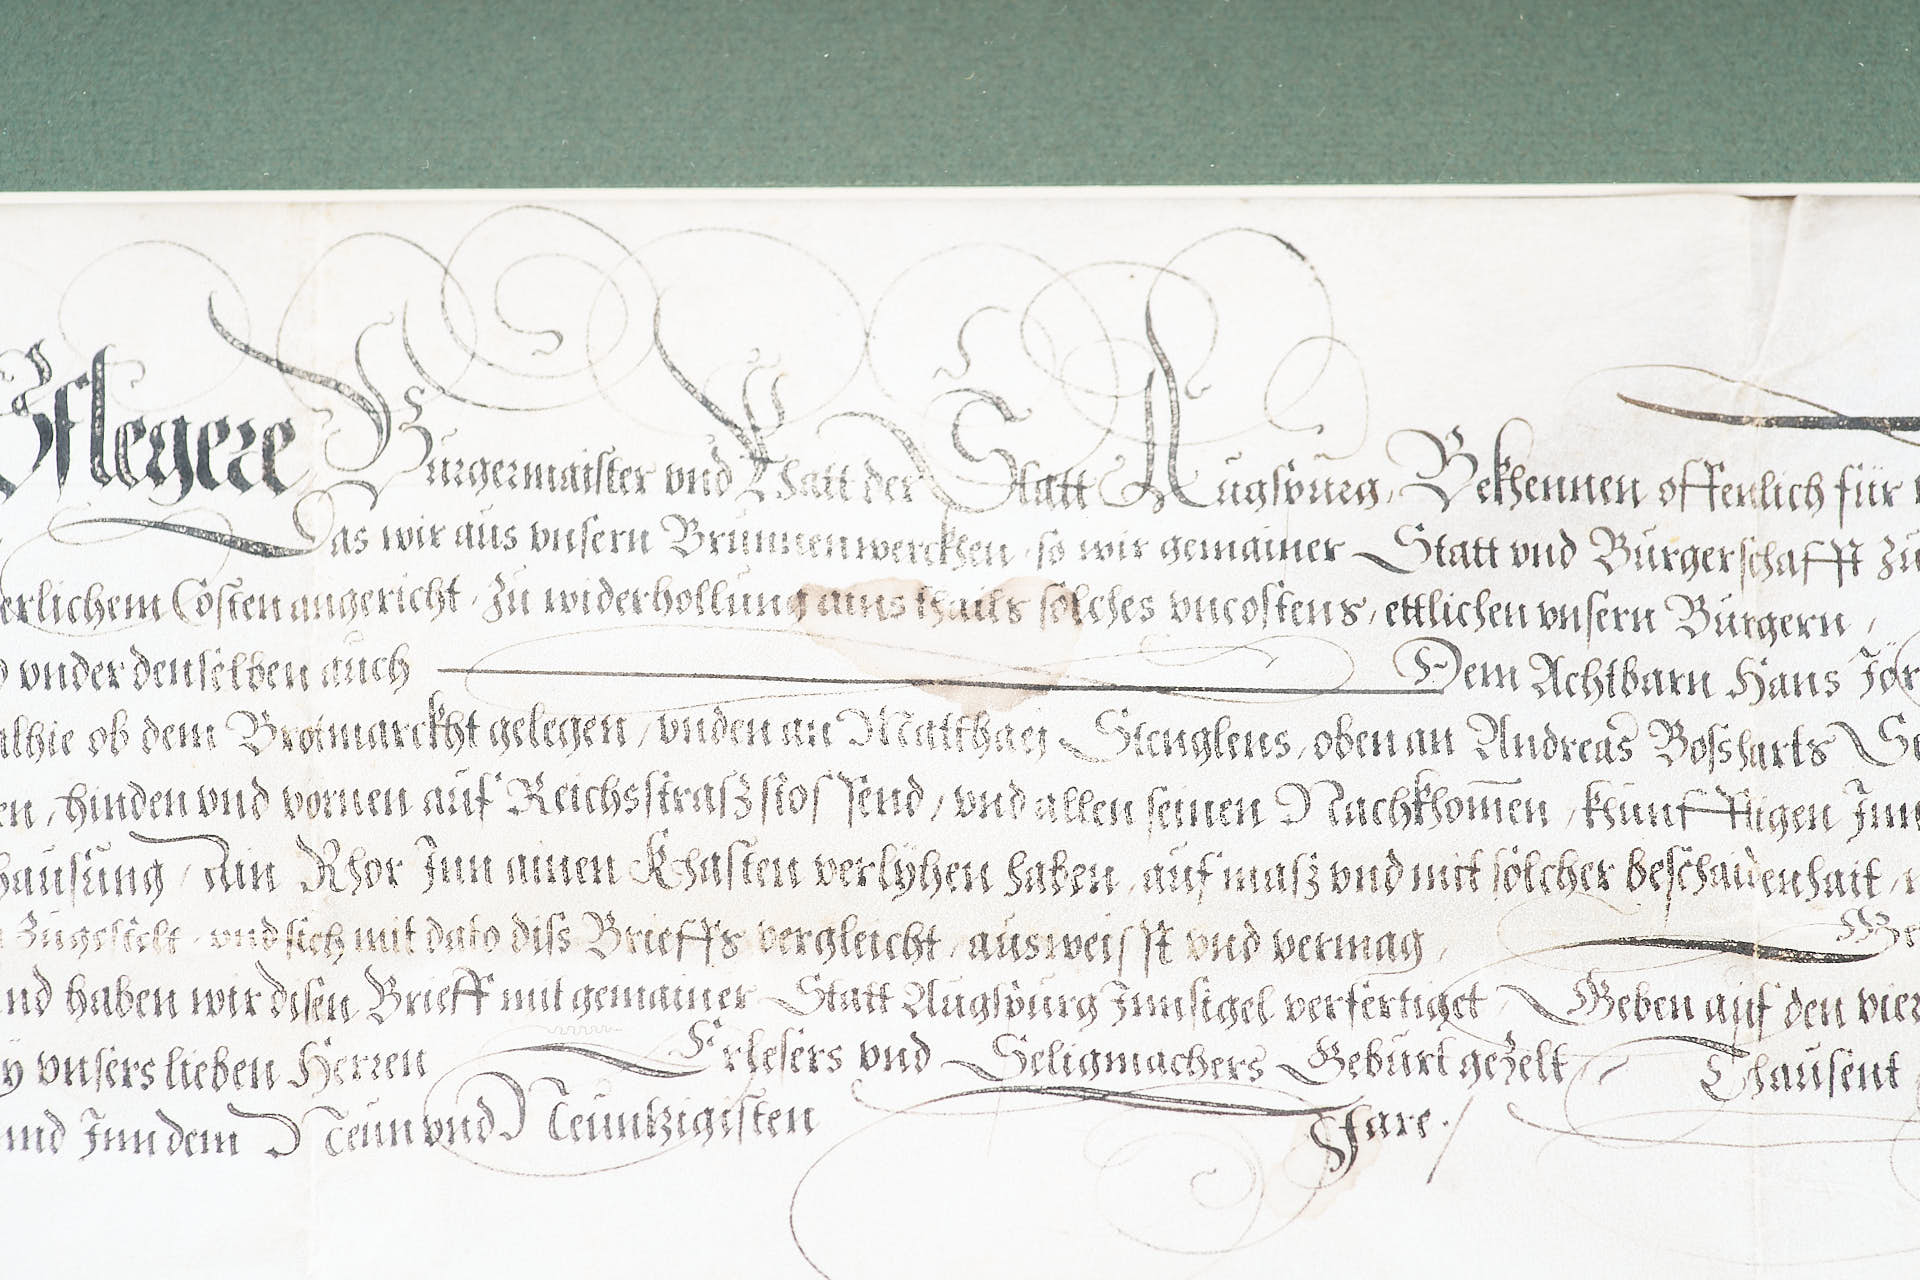 Pflegere Burgermaister vnd Rhatt der Statt Augspurg, Bekhennen offenlich für
Das wir aus vnsern Brunnenwerckhen, so wir gemainer Statt vnd Burgerschafft zu
erlichem Costen angericht, Zu widerhollung ains thails solches vncostens, ettlichen vnsern Burgern,
vnder denselben auch Dem Achtbarn Hans Jör
alhie ob dem Brotmarckht gelegen, vnden an Matthaej Stenglens, oben an Andreas Bossharts
en, hinden vnd vornen auf Reichsstrasz stossend, vnd allen seinen Nachkhom̄en, khünfftigen Inn
hausung, Ain Rhor Inn ainen Khasten verlyhen haben, auf masz vnd mit solcher beschaidenhait,
Zugestelt, vnd sich mit dato diss Brieffs vergleicht, ausweisst vnd vermag,
nd haben wir disen Brieff mit gemainer Statt Augspurg Innsigel verfertiget, Geben auf den vier
y vnsers lieben Herren Erlesers vnd Seligmachers Geburt gezelt, Thausent
nd Inn dem Neun vnd Neuntzigisten Jare.